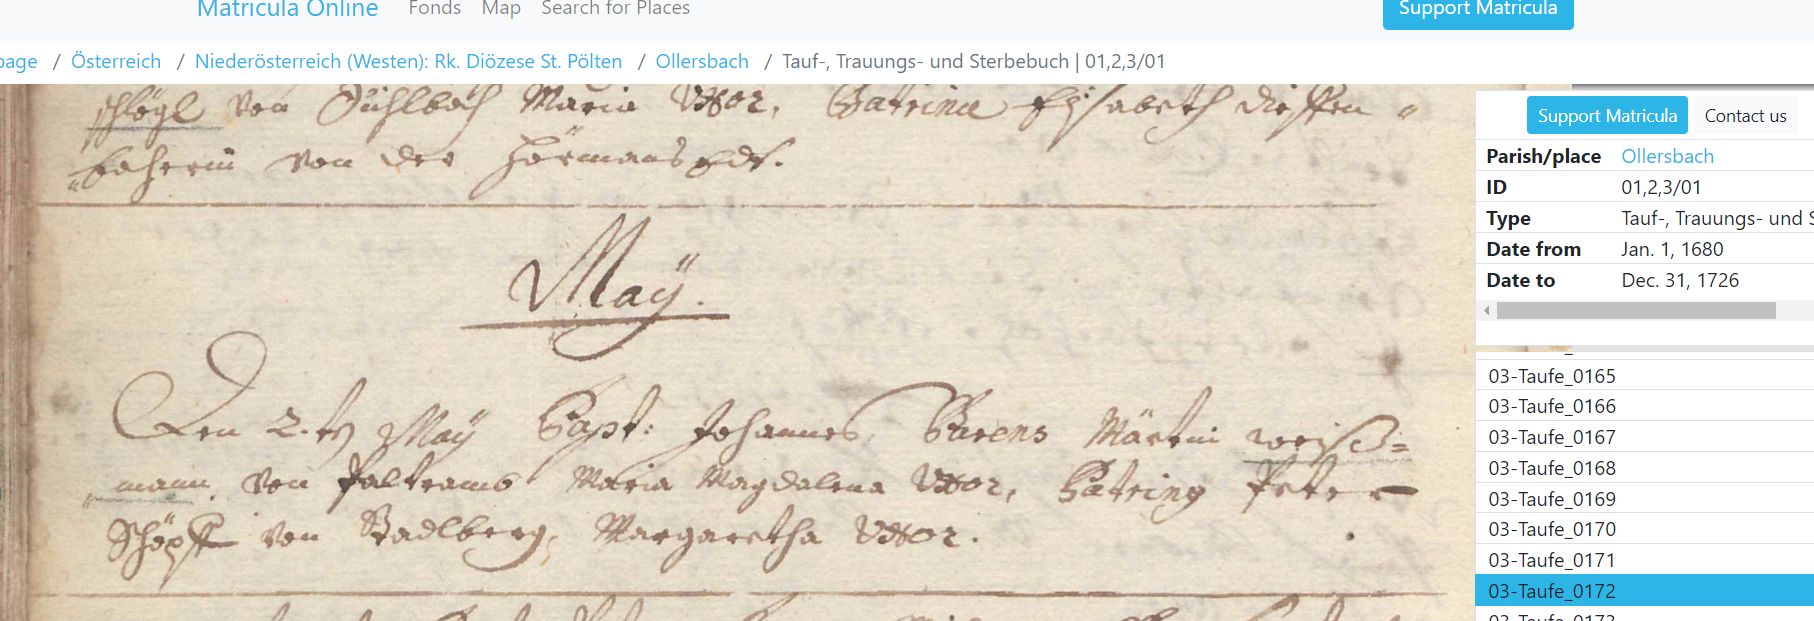 Matricula Online Fonds Map Search for Places Support Matricula
page / Österreich / Niederösterreich (Westen): Rk. Diözese St. Pölten / Ollersbach / Tauf-, Trauungs- und Sterbebuch | 01,2,3/01
schlögl von Maria Uxor, Patrina Elisabeth
von der
Maÿ.
Den 2. tn Maÿ Bapt: Johannes, Parens Märtin weiß=
mann von Paltrams Maria Magdalena Uxor, Patring Peter
Schöpff von Stadlberg, Margaretha Uxor.
Support Matricula Contact us
Parish/place Ollersbach
ID 01,2,3/01
Type Tauf-, Trauungs- und S
Date from Jan. 1, 1680
Date to Dec. 31, 1726
03-Taufe_0165
03-Taufe_0166
03-Taufe_0167
03-Taufe_0168
03-Taufe_0169
03-Taufe_0170
03-Taufe_0171
03-Taufe_0172
03-Taufe_0173